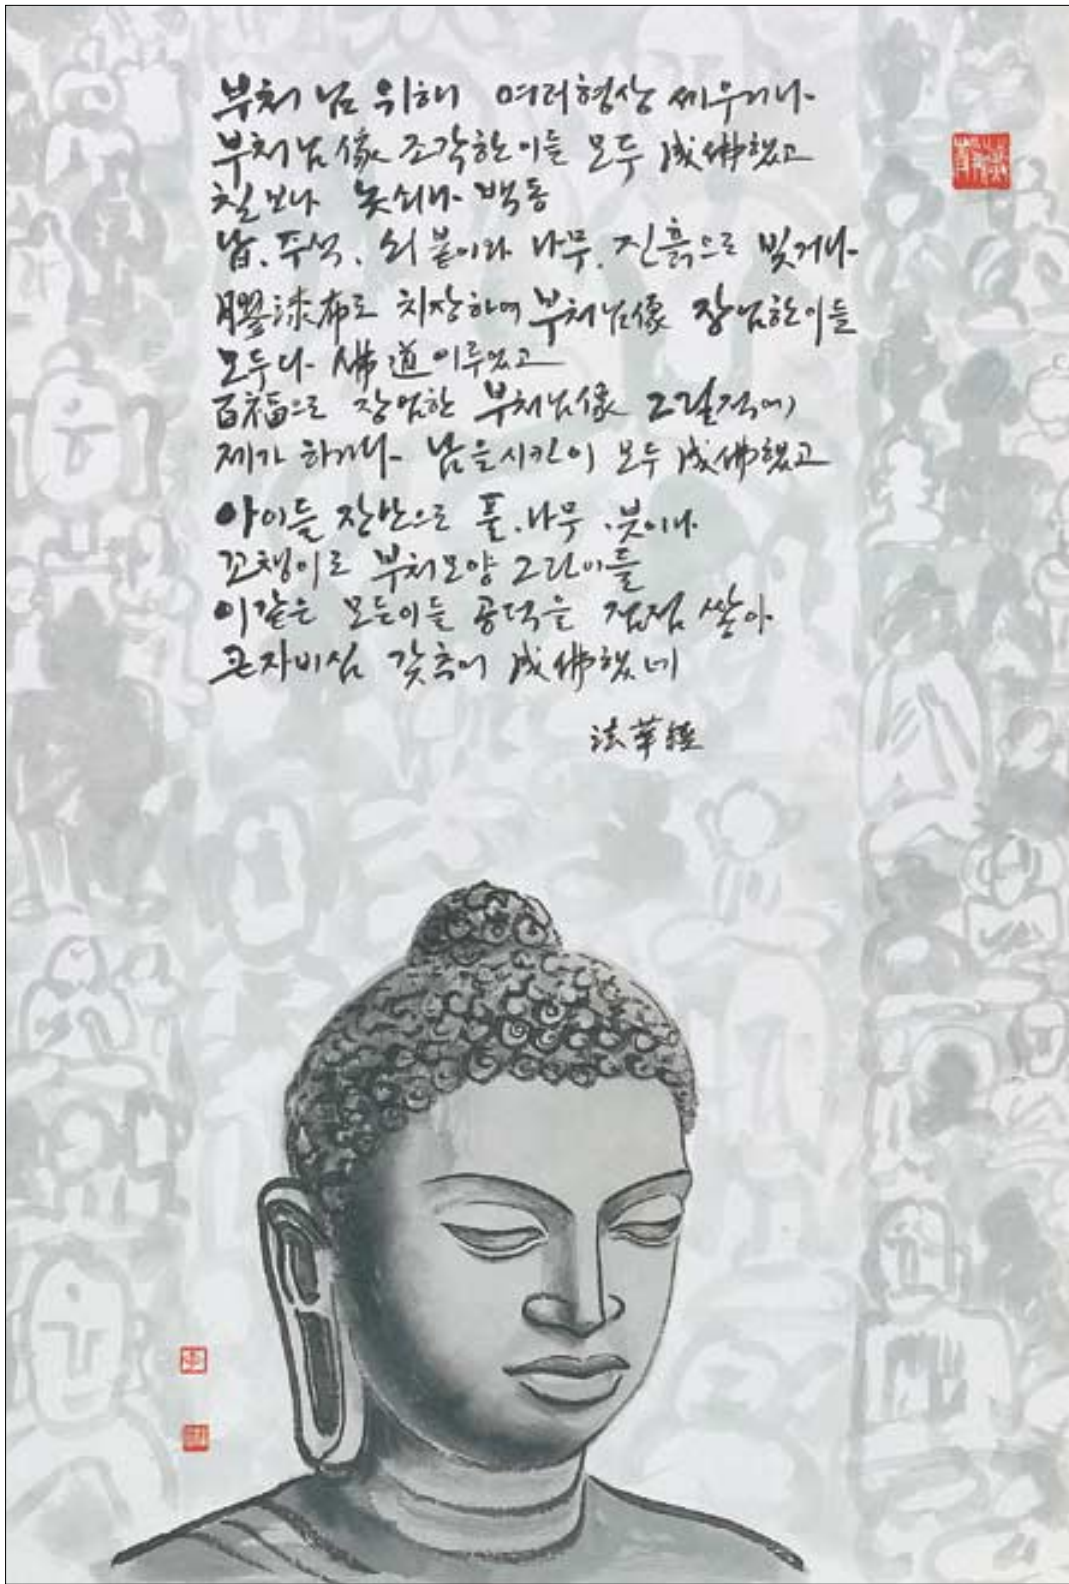 부처님 위해 여러형상 세우거나
부처님像 조각한이들 모두 成佛했고
칠보나 놋쇠나 백동
납, 주석, 쇠붙이라 나무, 진흙으로 빚거나
膠漆布로 치장하여 부처님像 장엄한이들
모두다 佛道 이루었고
百福으로 장엄한 부처님像 그릴적에
제가 하거나 남을시킨이 모두 成佛했고
아이들 장난으로 풀, 나무, 붓이나
꼬챙이로 부처모양 그린이들
이같은 모든이들 공덕을 점점 쌓아
큰자비심 갖추어 成佛했네
法華経